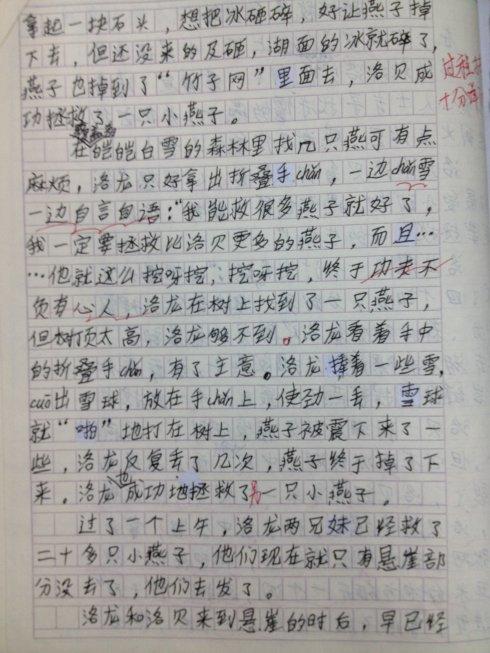 拿起一块石头，想把冰砸碎，好让燕子掉
下去，但还没来的及砸，湖面的冰就碎了，
燕子也掉到了“竹子网”里面去，洛贝成
功拯救了一只小燕子。
在皑皑白雪的森林里找几只燕可有点
麻烦，洛龙只好拿出折叠手chǎn，一边chǎn雪
一边自言自语：“我能救很多燕子就好了，
我一定要拯救比洛贝更多的燕子，而且…
…他就这么挖呀挖，挖呀挖，终于功夫不
负有心人，洛龙在树上找到了一只燕子，
但树顶太高，洛龙够不到。洛龙看着手中
的折叠手chǎn，有了主意。洛龙捧着一些雪，
cuō出雪球，放在手chǎn上，使劲一丢，雪球
就“啪”地打在树上，燕子被震下来了一
些，洛龙反复丢了几次，燕子终于掉了下
来。洛龙也成功地拯救了另一只小燕子。
过了一个上午，洛龙两兄妹已经救了
二十多只小燕子，他们现在就只有悬崖部
分没去了，他们去发了。
洛龙和洛贝来到悬崖的时后，早已经
过程
十分